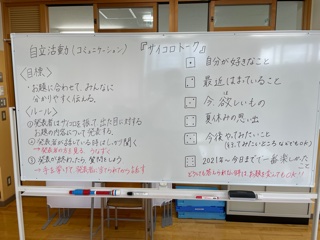 自立活動（コミュニケーション）『サイコロトーク』
〈目標〉
・お題に合わせて、みんなに
分かりやすく伝える。
〈ルール〉
①発表者はサイコロを振って出た目に対する
お題の内容について発表する。
②発表者が話している時はしっかり聞く
→発表者の方を見る、うなずく
③発表が終わったら質問をしよう
→手を挙げて、発表者に当てられてから話す
自分が好きなこと
最近はまっていること
今、欲しいもの
夏休みの思い出
今後やってみたいこと
（行ってみたいところなどでもOK）
2021年〜今日までで一番楽しかったこと
どうしても答えられない時は、お題を変えてもOK!!